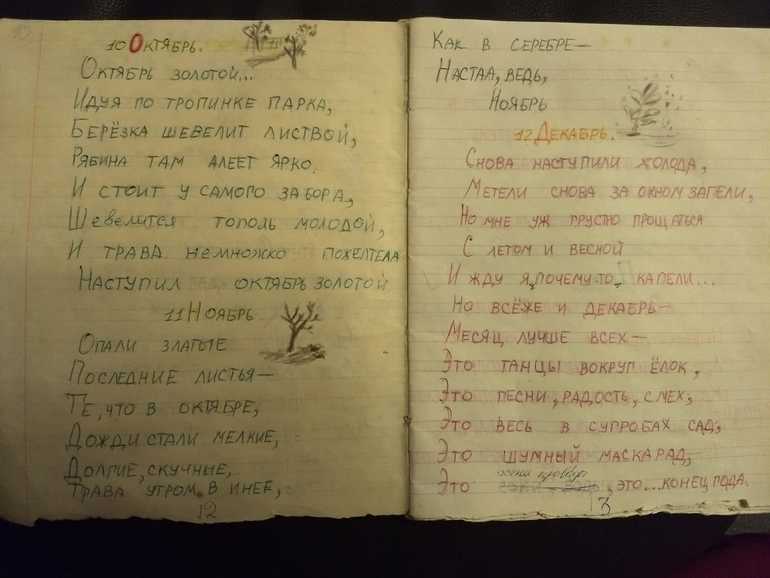 10 Октябрь.
Октябрь золотой...
Идуя по тропинке парка,
Берёзка шевелит листвой,
Рябина там алеет ярко.
И стоит у самого забора,
Шевелится тополь молодой,
И трава немножко пожелтела
Наступил октябрь золотой
11 Ноябрь
Опали златые
Последние листья—
Те, что в октябре,
Дожди стали мелкие,
Долгие, скучные,
Трава утром в инее,
12
Как в серебре—
Настал, ведь,
Ноябрь
12 Декабрь.
Снова наступили холода,
Метели снова за окном запели,
Но мне уж грустно прощаться
С летом и весной
И жду я, почему-то, капели...
Но всёже и декабрь—
Месяц лучше всех—
Это танцы вокруг ёлок,
Это песни, радость, смех,
Это весь в сугробах сад,
Это шумный маскарад,
Это , это...конец года.
13